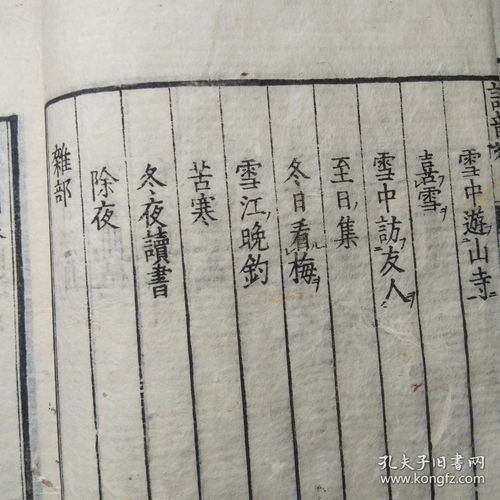 雪中遊山寺
喜雪
雪中訪友人
至日集
冬日看梅
雪江晚釣
苦寒
冬夜讀書
除夜
雜部
孔夫子旧书网
www.kongfz.com